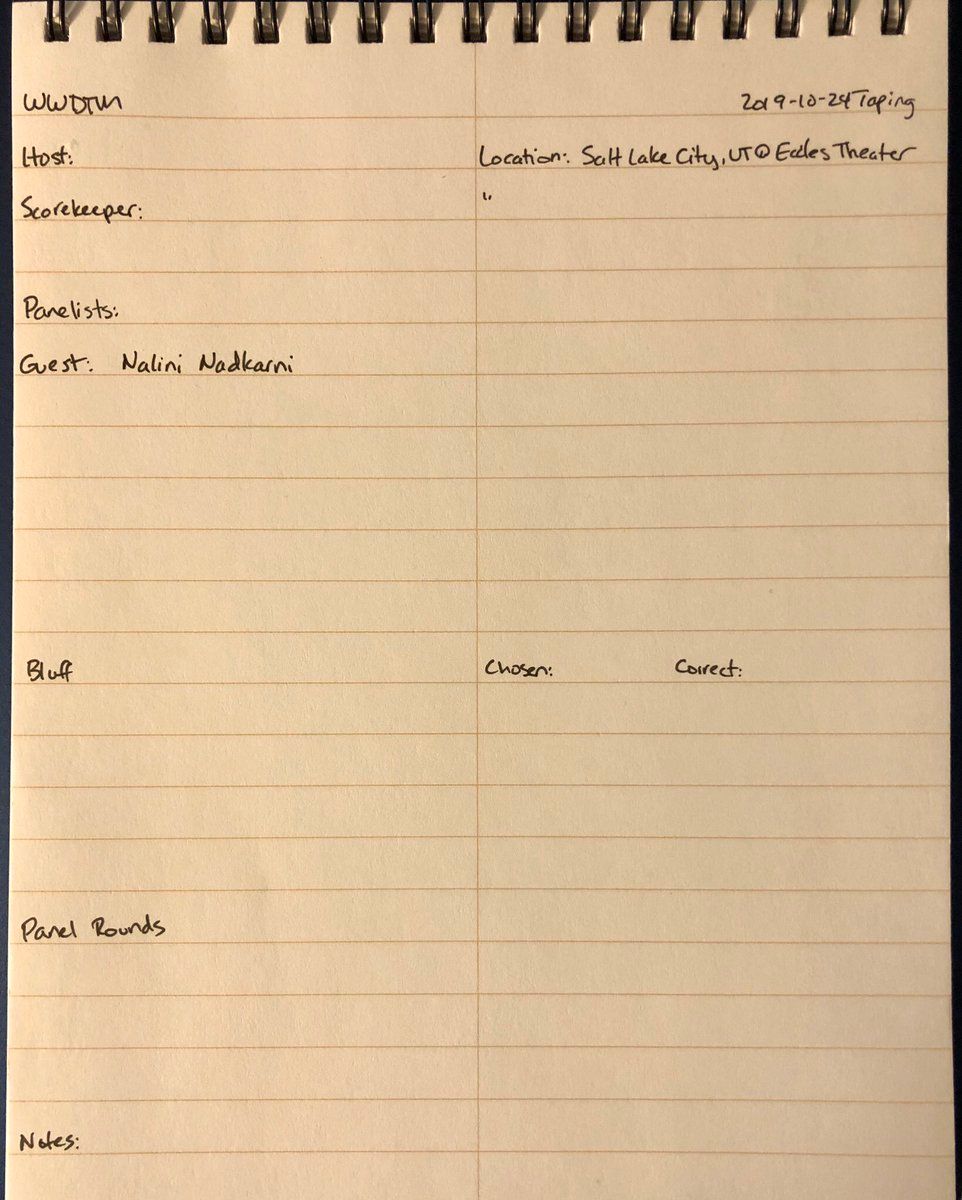 WWDTM 2019-10-24 Taping
Host: Location: Salt Lake City, UT @ Eccles Theater
Scorekeeper: "
Panelists:
Guest: Nalini Nadkarni
Bluff Chosen: Correct:
Panel Rounds
Notes: